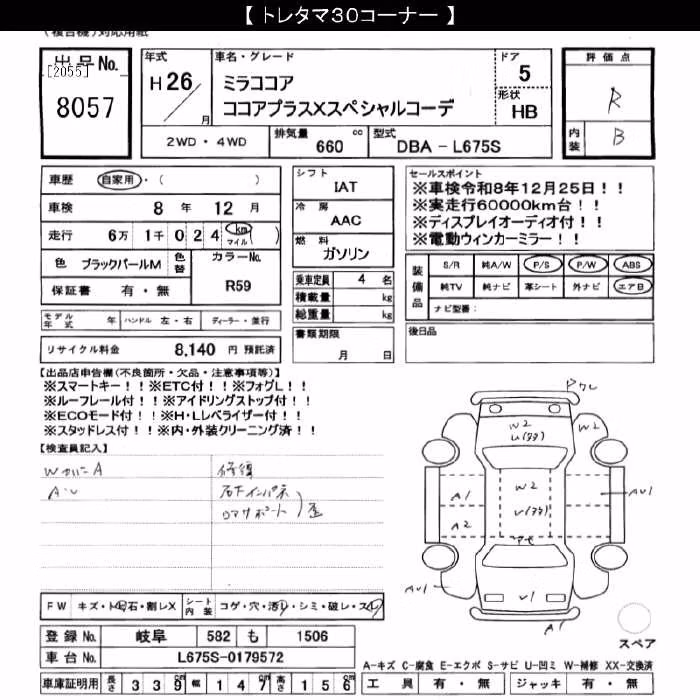 【トレタマ30コーナー】
(複合機)対応用紙
出品No.
[2055]
8057
年式
H26/
月
車名・グレード
ミラココア
ココアプラスXスペシャルコーデ
ドア
5
形状
HB
評価点
R
内装
B
2WD・4WD
排気量
660 cc
型式
DBA - L675S
車歴 自家用・( )
車検 8年 12月
走行 6万 1千 0 2 4 km マイル ( )
色 ブラックパールM 色替
カラーNo.
R59
保証書 有・無
モデル年式 年 ハンドル 左・右 ディーラー・並行
リサイクル料金 8,140 円 預託済
シフト
IAT
冷房
AAC
燃料
ガソリン
乗車定員 4 名
積載量 kg
総重量 kg
書類期限
月 日
セールスポイント
※車検令和8年12月25日!!
※実走行60000km台!!
※ディスプレイオーディオ付!!
※電動ウィンカーミラー!!
装備品
S/R 純A/W P/S P/W ABS
純TV 純ナビ 革シート 外ナビ エアB
ナビ型番:
後日品
【出品店申告欄(不良箇所・欠品・注意事項等)】
※スマートキー!!※ETC付!!※フォグL!!
※ルーフレール付!!※アイドリングストップ付!!
※ECOモード付!!※H・Lレベライザー付!!
※スタッドレス付!!※内・外装クリーニング済!!
【検査員記入】
WカバーA
A・U
修復
右下インパネ
ロアサポート
歪
W2
W2
A1
W2
AU1
A2
AU1
V1
A1
FW キズ・トビ石・割レX シート内装 コゲ・穴・汚レ・シミ・破レ・スレ
登録No. 岐阜 582 も 1506
車台No. L675S-0179572
車庫証明用 長さ 339 幅 147 高さ 156
スペア
A-キズ C-腐食 E-エクボ S-サビ U-凹ミ W-補修 XX-交換済
工具 有・無 ジャッキ 有・無